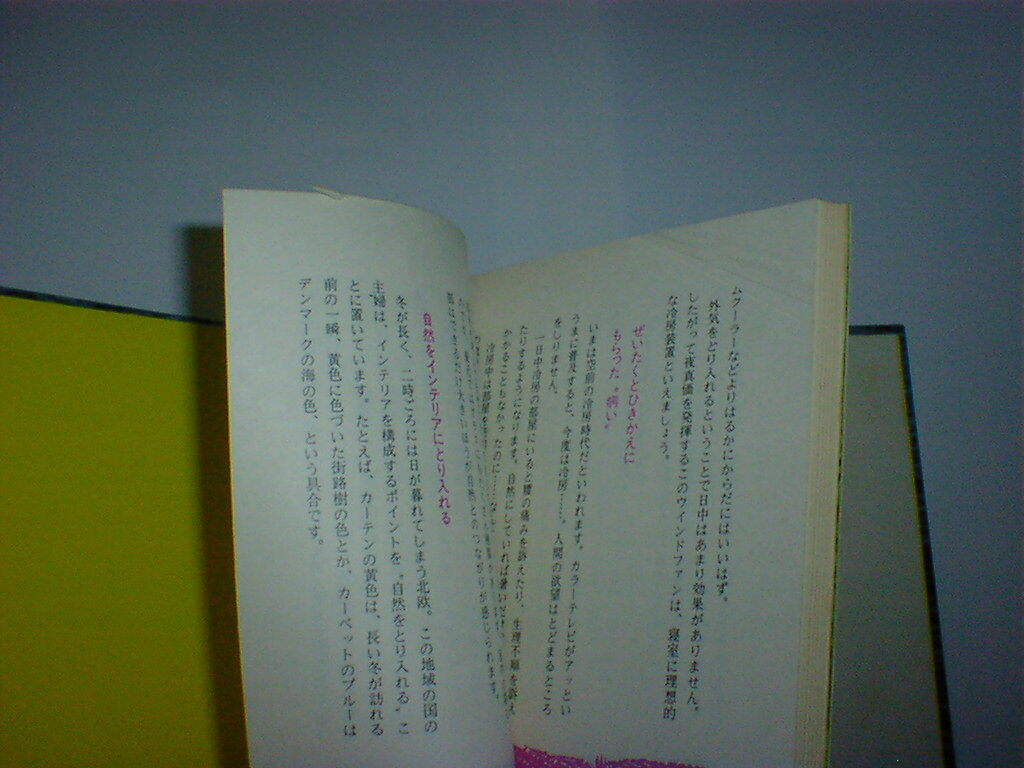 ムクーラーなどよりはるかにからだにはいいはず。
外気をとり入れるということで日中はあまり効果がありません。
したがって夜真価を発揮するこのウインドファンは、寝室に理想的
な冷房装置といえましょう。
ぜいたくとひきかえに
もらった〝病い〟
いまは空前の冷房時代だといわれます。カラーテレビがアッとい
うまに普及すると、今度は冷房……。人間の欲望はとどまるところ
をしりません。
一日中冷房の部屋にいると腰の痛みを訴えたり、生理不順を訴え
たりするようになります。自然にしていれば暑いだけ
かかることもなかったのに……
冷房中は部屋を
自然とのつながりが感じられます。
自然をインテリアにとり入れる
冬が長く、二時ごろには日が暮れてしまう北欧。この地域の国の
主婦は、インテリアを構成するポイントを〝自然をとり入れる〟こ
とに置いています。たとえば、カーテンの黄色は、長い冬が訪れる
前の一瞬、黄色に色づいた街路樹の色とか、カーペットのブルーは
デンマークの海の色、という具合です。